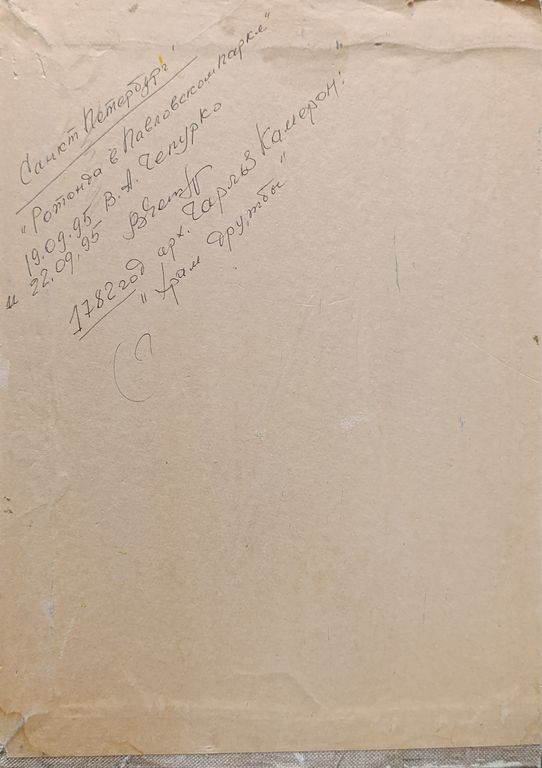 Санкт Петербург
"Ротонда в Павловском парке"
19.09.95 В. А. Чепурко
и 22.09.95
1782 год арх. Чарльз Камерон:
"Храм дружбы"